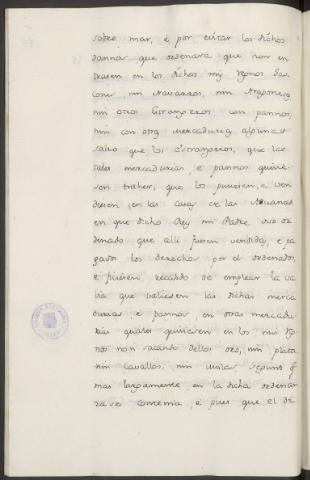 sobre mar, e por evitar los dichos
dannos que ordenara que non en
trasen en los dichos mis regnos Gas
cones, nin Navarros, nin Aragoneses,
nin otros Estrangeros con pannos,
nin con otras mercadurias algunas
salvo que los Estrangeros, que las
tales mercadurias, e pannos quisie-
sen traher, que los pusiesen, e ven
diesen en las casas de las Aduanas
en que dicho Rey mi Padre ovo or
denado que alli fuesen vendidas, e pa
gados los derechos por el ordenados,
e fisiesen recabdo de emplear la va
lia que valiesen las dichas merca
durias e pannos, en otras mercadu-
rias quales quisiesen en los mis Reg
nos non sacando dellos oro, nin plata
nin Cavallos, nin mulas, segunt q̃
mas largamente en la dicha ordenan
za se contenia, e pues que el di